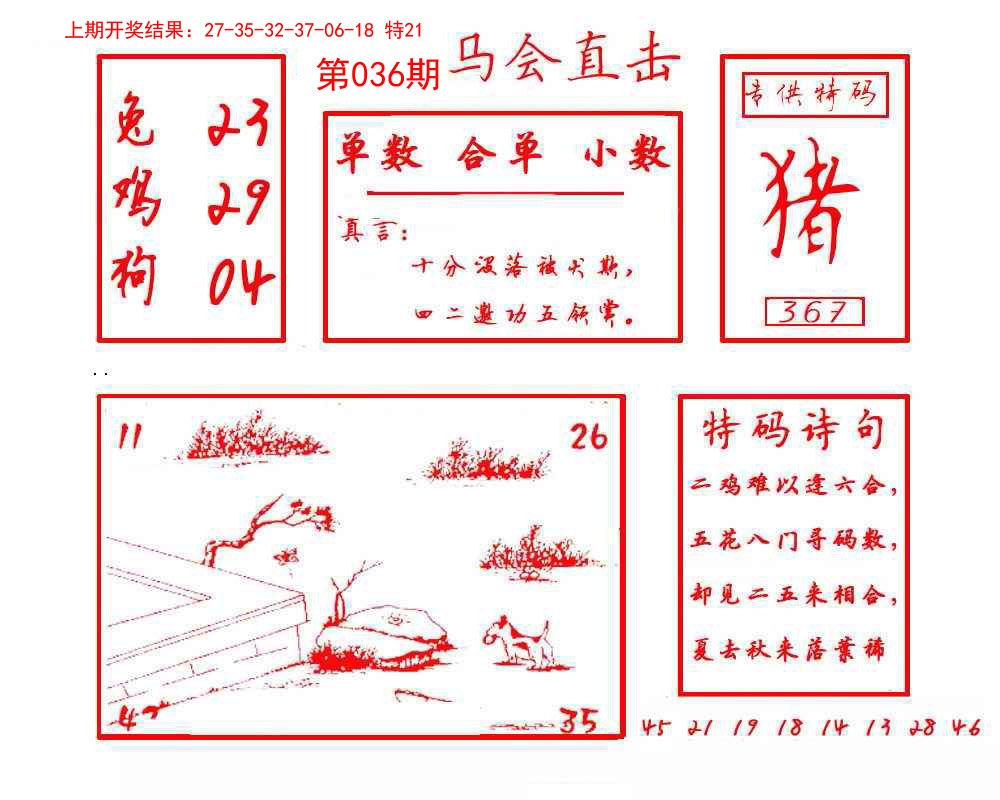 上期开奖结果：27-35-32-37-06-18 特21
第036期 马会直击
兔 23
鸡 29
狗 04
单数 合单 小数
真言：
十分没落被犬欺，
四二邀功五领赏。
专供特码
猪
367
11
26
35
特码诗句
二鸡难以逢六合，
五花八门寻码数，
却见二五来相合，
夏去秋来落葉稀
45 21 19 18 14 13 28 46